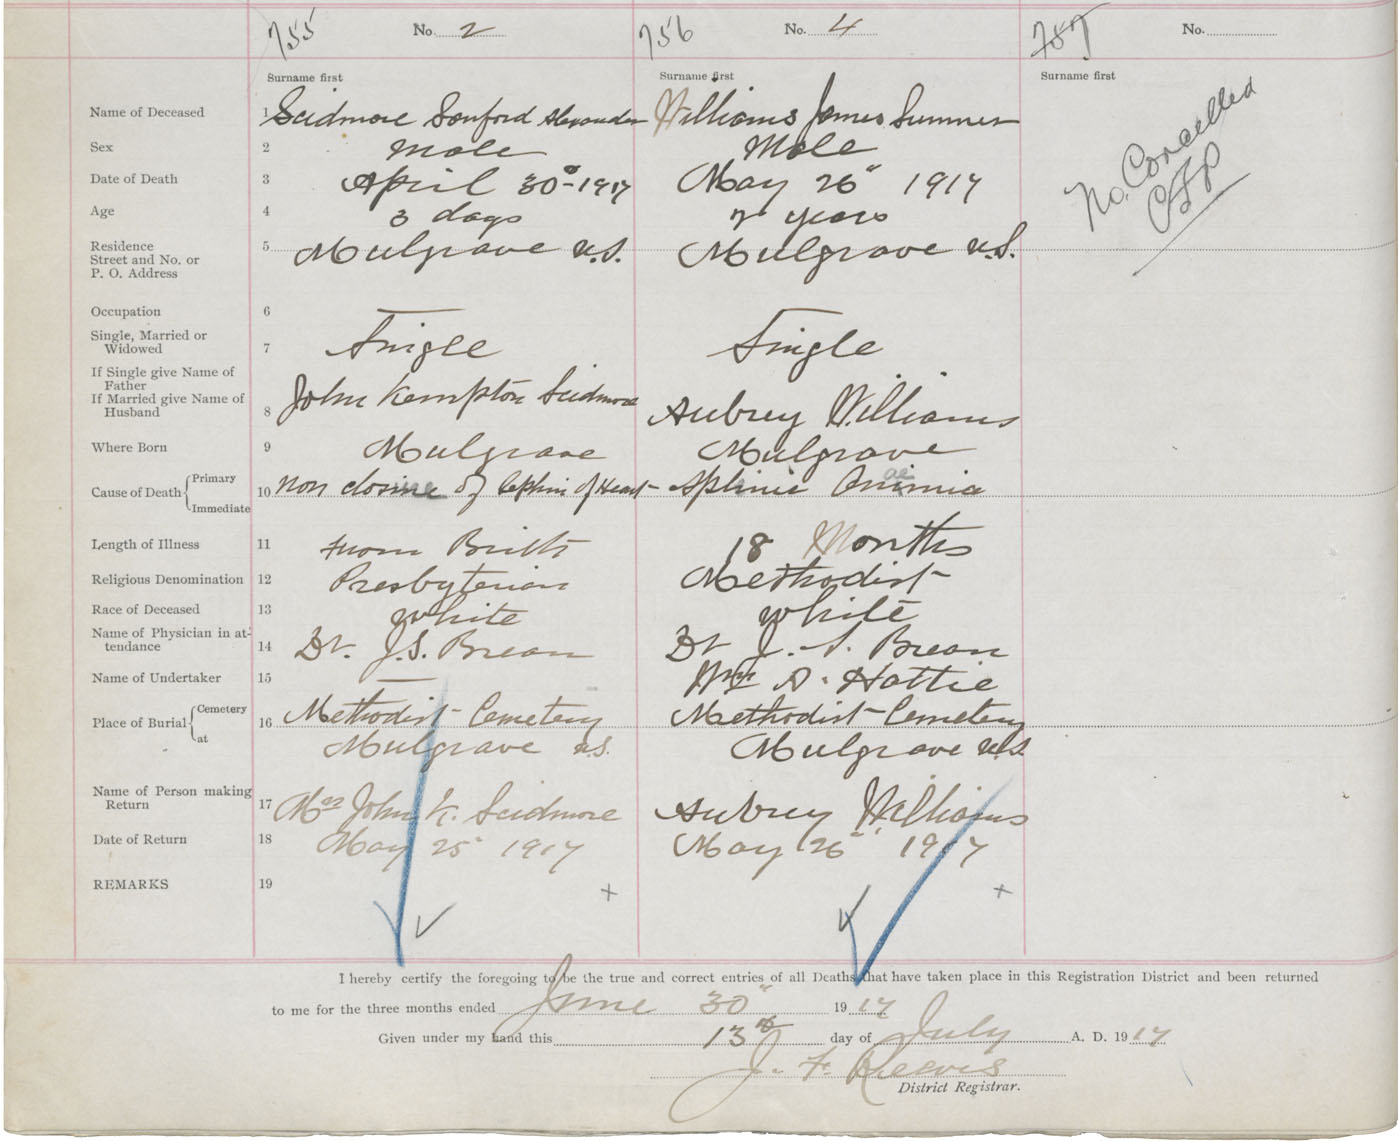 755 No. 2 756 No. 4 757 No.
Surname first Surname first Surname first
Name of Deceased 1 Scidmore Sanford Alexander Williams James Sumner
No. Cancelled
Sex 2 Male Male
Date of Death 3 April 30" 1917 May 26" 1917
Age 4 3 days 7 years
Residence
Street and No. or
P. O. Address
5 Mulgrave N.S. Mulgrave N.S.
Occupation 6
Single, Married or
Widowed
7 Single Single
If Single give Name of
Father
If Married give Name of
Husband
8 John Kempton Scidmore Aubrey Williams
Where Born 9 Mulgrave Mulgrave
Cause of Death Primary
Immediate
10 Non closure of Sephin of Heart Splinic Animia
ae
Length of Illness 11 from Birth 18 Months
Religious Denomination 12 Presbyterian Methodist
Race of Deceased 13 White White
Name of Physician in at-
tendance
14 Dr. J.S. Brean Dr J. S. Brean
Name of Undertaker 15 — A. Hattie
Place of Burial Cemetery
at
16 Methodist Cemetery Methodist Cemetery
Mulgrave N.S. Mulgrave N.S.
Name of Person making
Return
17 Mrs John K. Scidmore Aubrey Williams
Date of Return 18 May 25" 1917 May 26" 1917
REMARKS 19
I hereby certify the foregoing to be the true and correct entries of all Deaths that have taken place in this Registration District and been returned
to me for the three months ended June 30" 1917
Given under my hand this 13th day of July A. D. 1917
J. F. Reeves
District Registrar.